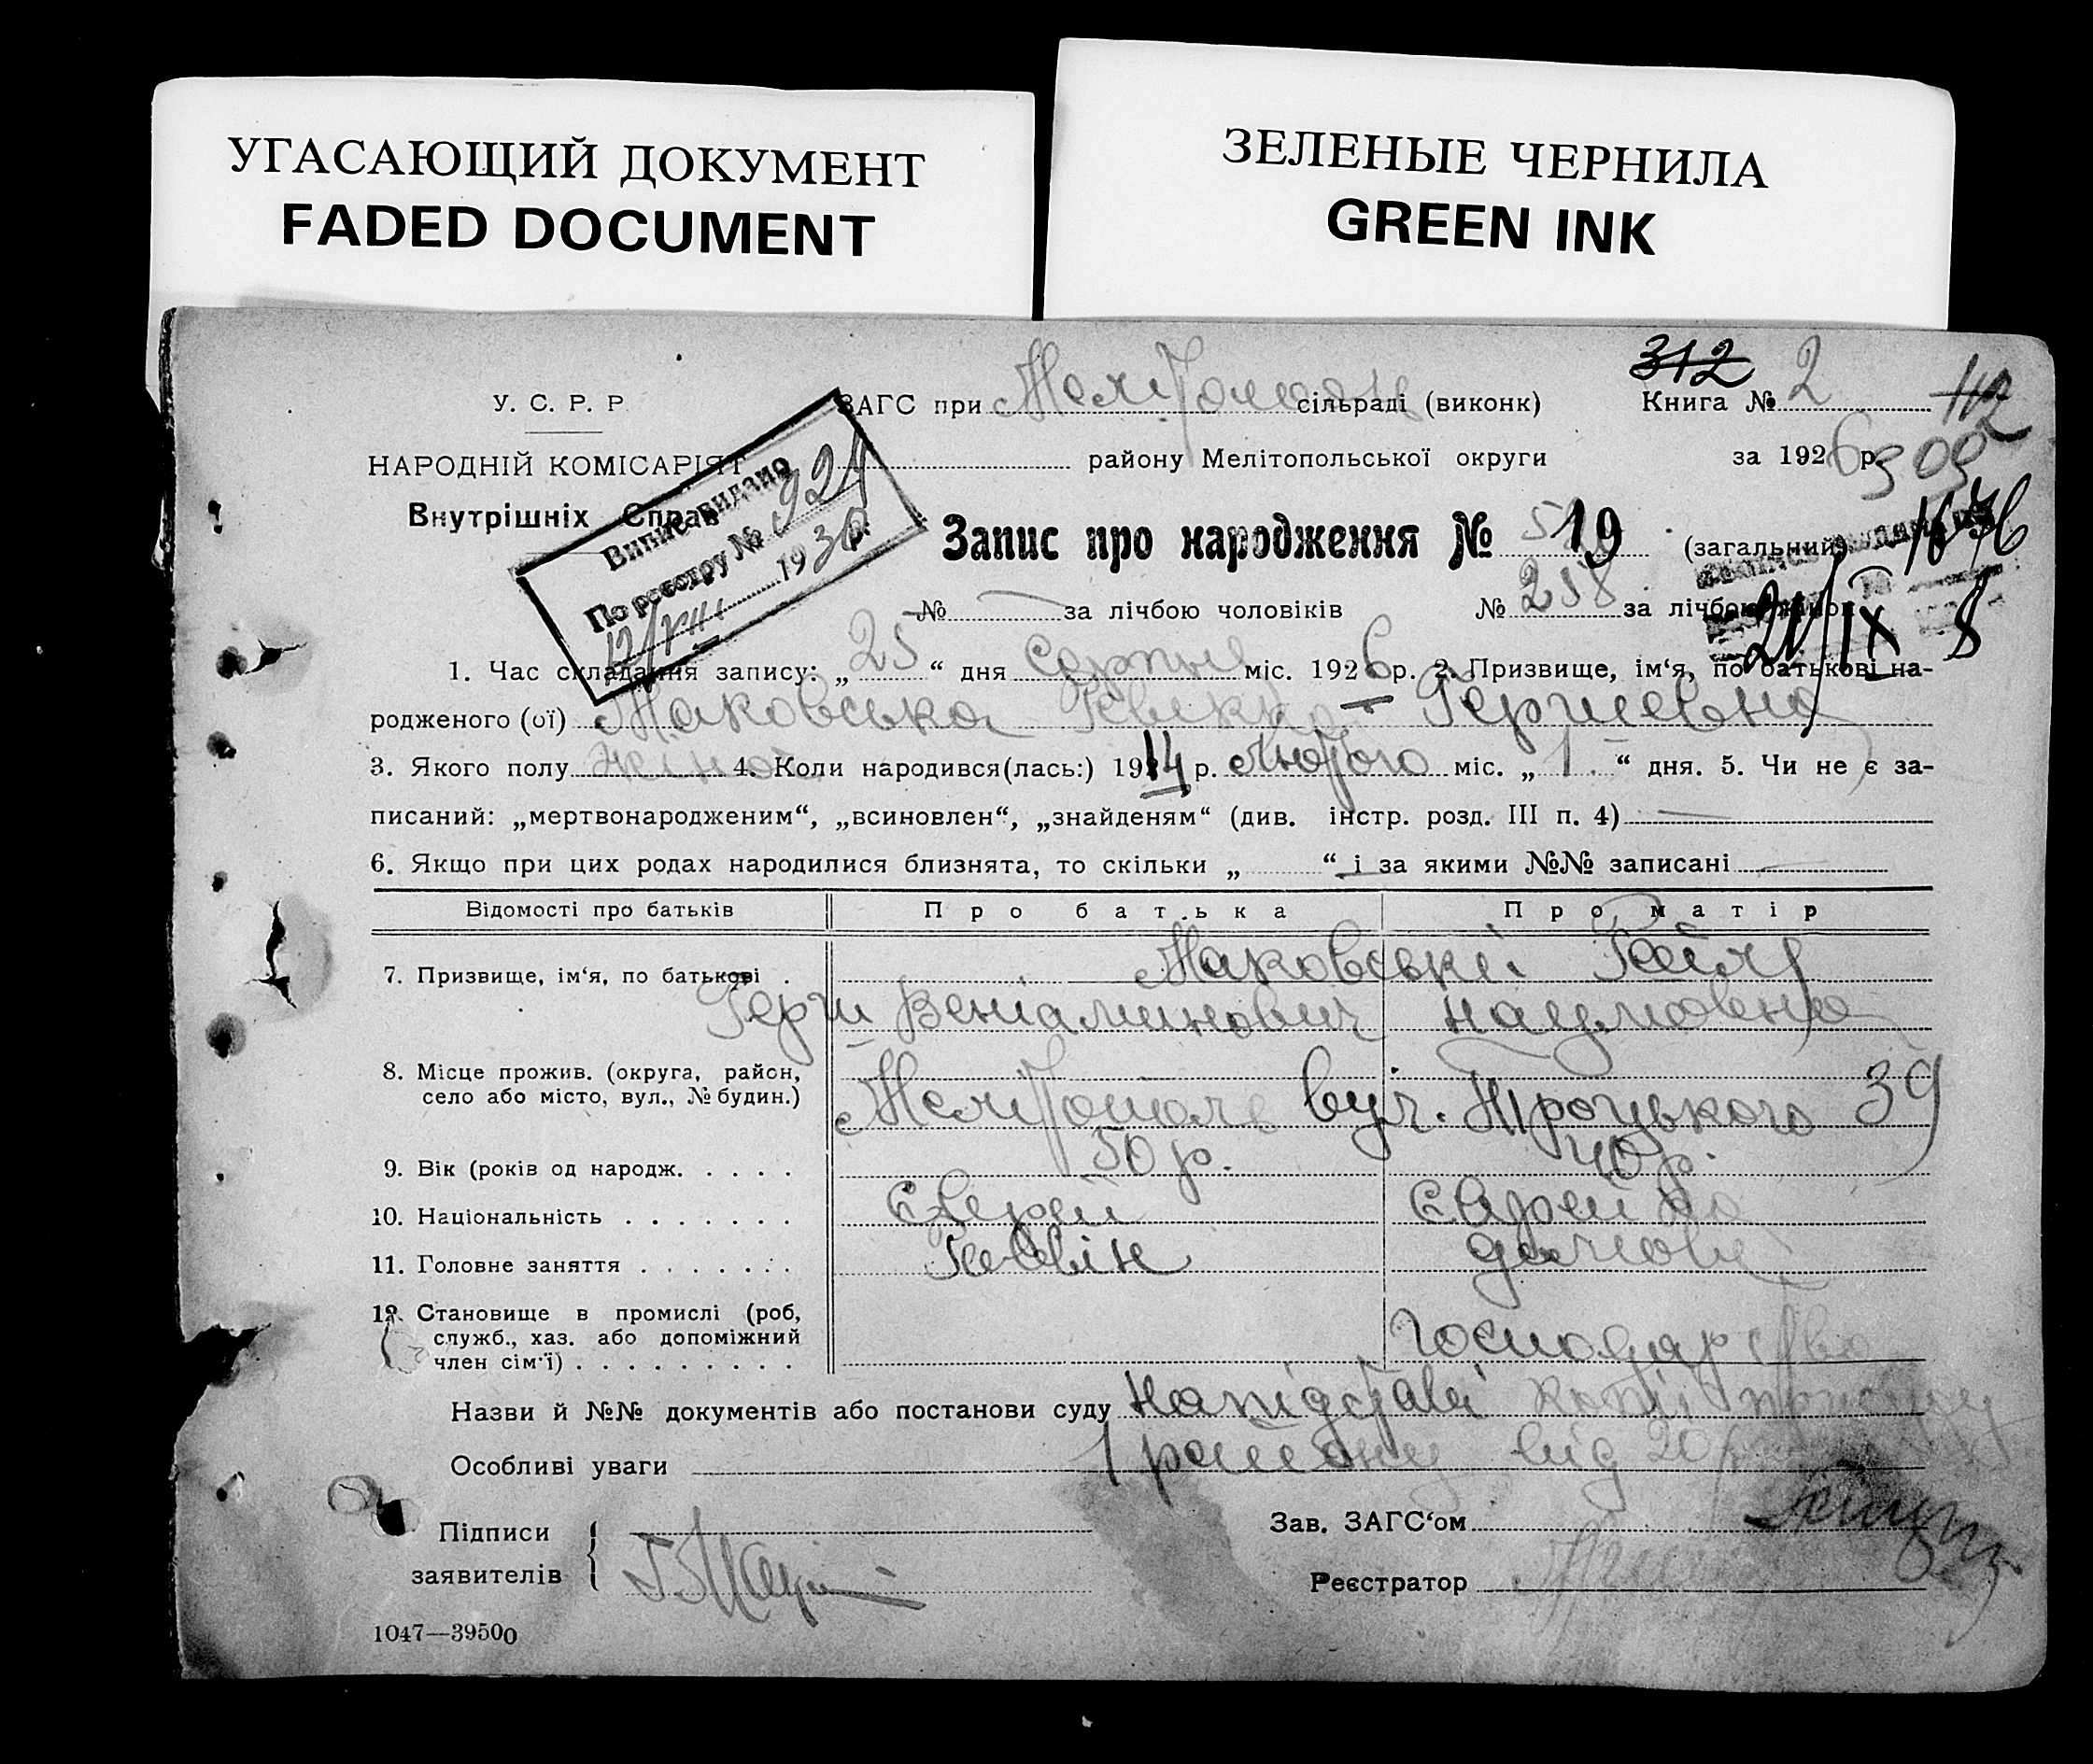 УГАСАЮЩИЙ ДОКУМЕНТ
FADED DOCUMENT
ЗЕЛЕНЫЕ ЧЕРНИЛА
GREEN INK
312
У. С. Р. Р.
ЗАГС при сільраді (виконк)
Книга № 2
НАРОДНІЙ КОМІСАРІЯТ
району Мелітопольської округи
за 1926 р.
Внутрішніх Справ
Випис видано
По реєстру № 924
12/VIII 1930 р.
Запис про народження № 519 (загальний)
№ за лічбою чоловіків № 258 за лічбою жінок
21/IX 8
1. Час складання запису: „ 25 “ дня Серпня міс. 1926 р. 2. Призвище, ім‘я, по батькові на-
родженого (ої) Маковська Ревекка Гершевна
3. Якого полу жіноч. 4. Коли народився(лась:) 1914 р. Лютого міс. „ 1 “ дня. 5. Чи не є за-
писаний: „мертвонародженим“, „всиновлен“, „знайденям“ (див. інстр. розд. III п. 4)
6. Якщо при цих родах народилися близнята, то скільки „ “ і за якими №№ записані
Відомості про батьків Про батька Про матір
7. Призвище, ім‘я, по батькові Маковські Рейля
Герш Веніаминович Наумовна
8. Місце прожив. (округа, район,
село або місто, вул., № будин.) Мелітополь вул. Троцького 39
9. Вік (років од народж. 50 р. 40 р.
10. Національність Єврей Єврейка
11. Головне заняття
12. Становище в промислі (роб,
служб., хаз. або допоміжний
член сім‘ї) господарство
Назви й №№ документів або постанови суду На підставі копії присуду
Особливі уваги 1 району від 20
Підписи
заявителів
Зав. ЗАГС‘ом
Реєстратор
1047—39500